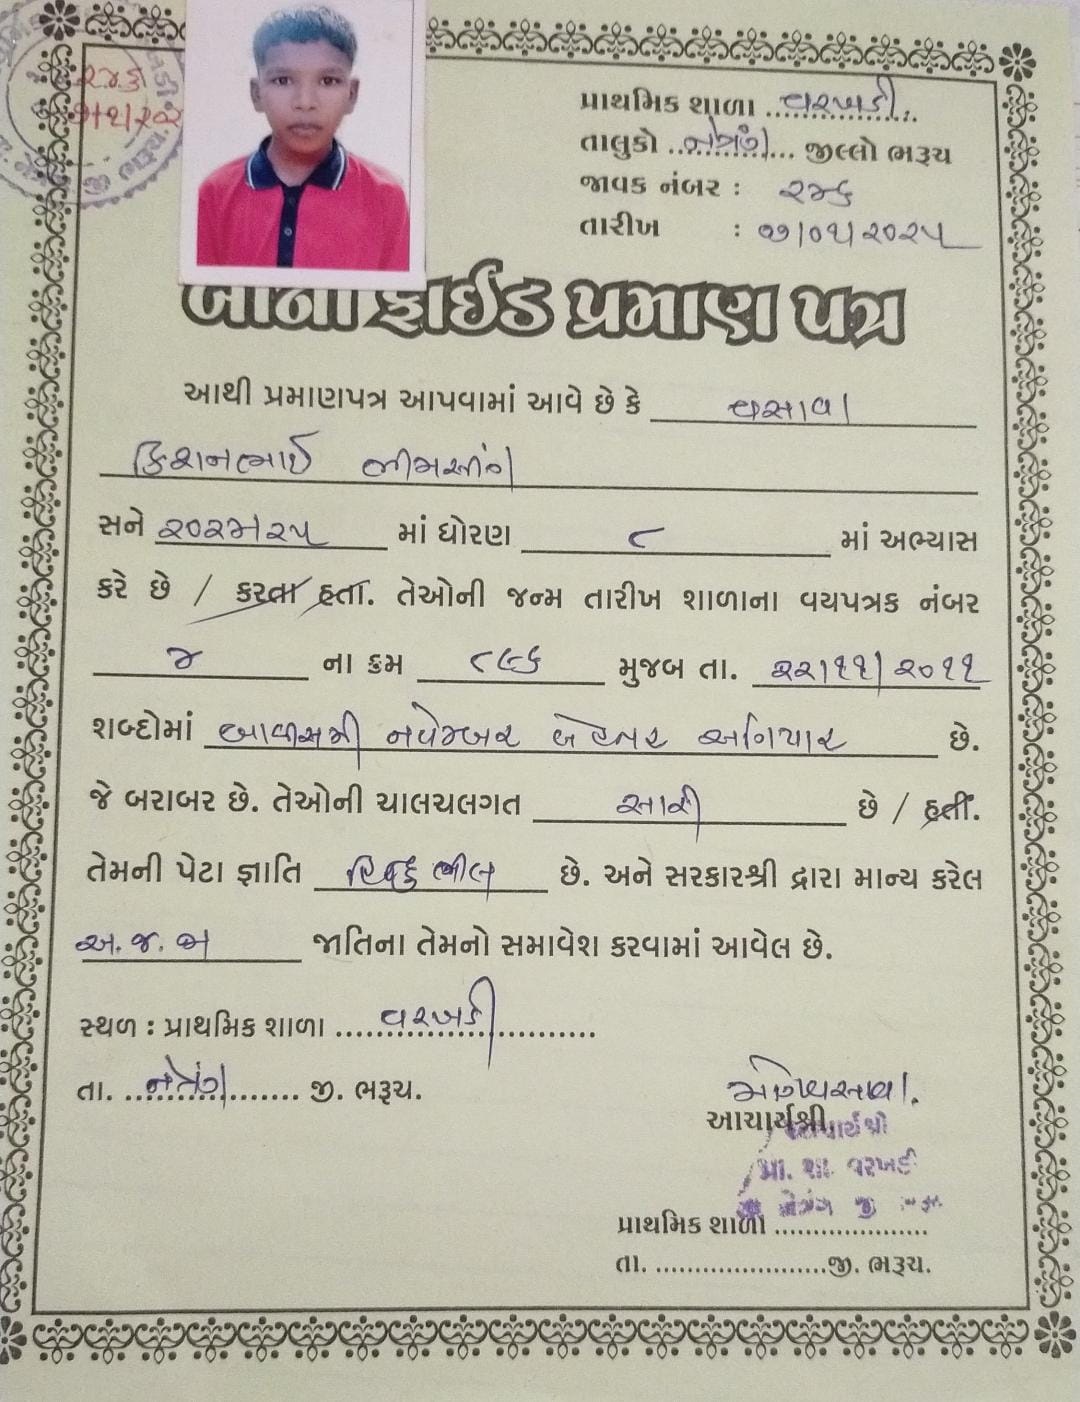 ૨૪૬
પ્રાથમિક શાળા ..વરખડી..
તાલુકો ..નેત્રંગ.... જીલ્લો ભરૂચ
જાવક નંબર : ૨૪૬
તારીખ : ૦૭/૦૧/૨૦૨૫
બોનાફાઈડ પ્રમાણ પત્ર
આથી પ્રમાણપત્ર આપવામાં આવે છે કે વસાવા
કિશનભાઈ ભીમસીંગ
સને ૨૦૨૪/૨૫ માં ધોરણ ૮ માં અભ્યાસ
કરે છે / કરતા હતા. તેઓની જન્મ તારીખ શાળાના વયપત્રક નંબર
૪ ના ક્રમ ૮૯૬ મુજબ તા. ૨૨/૧૧/૨૦૧૧
શબ્દોમાં બાવીસમી નવેમ્બર બે હજાર અગિયાર છે.
જે બરાબર છે. તેઓની ચાલચલગત સારી છે / હતી.
તેમની પેટા જ્ઞાતિ હિન્દુ ભીલ છે. અને સરકારશ્રી દ્વારા માન્ય કરેલ
અ.જ.જા જાતિના તેમનો સમાવેશ કરવામાં આવેલ છે.
સ્થળ : પ્રાથમિક શાળા ....વરખડી..........
તા. ..નેત્રંગ........ જી. ભરૂચ.
આચાર્યશ્રી,
આચાર્ય શ્રી
પ્રા. શા. વરખડી
નેત્રંગ જી
પ્રાથમિક શાળા ....................
તા. ......................જી. ભરૂચ.